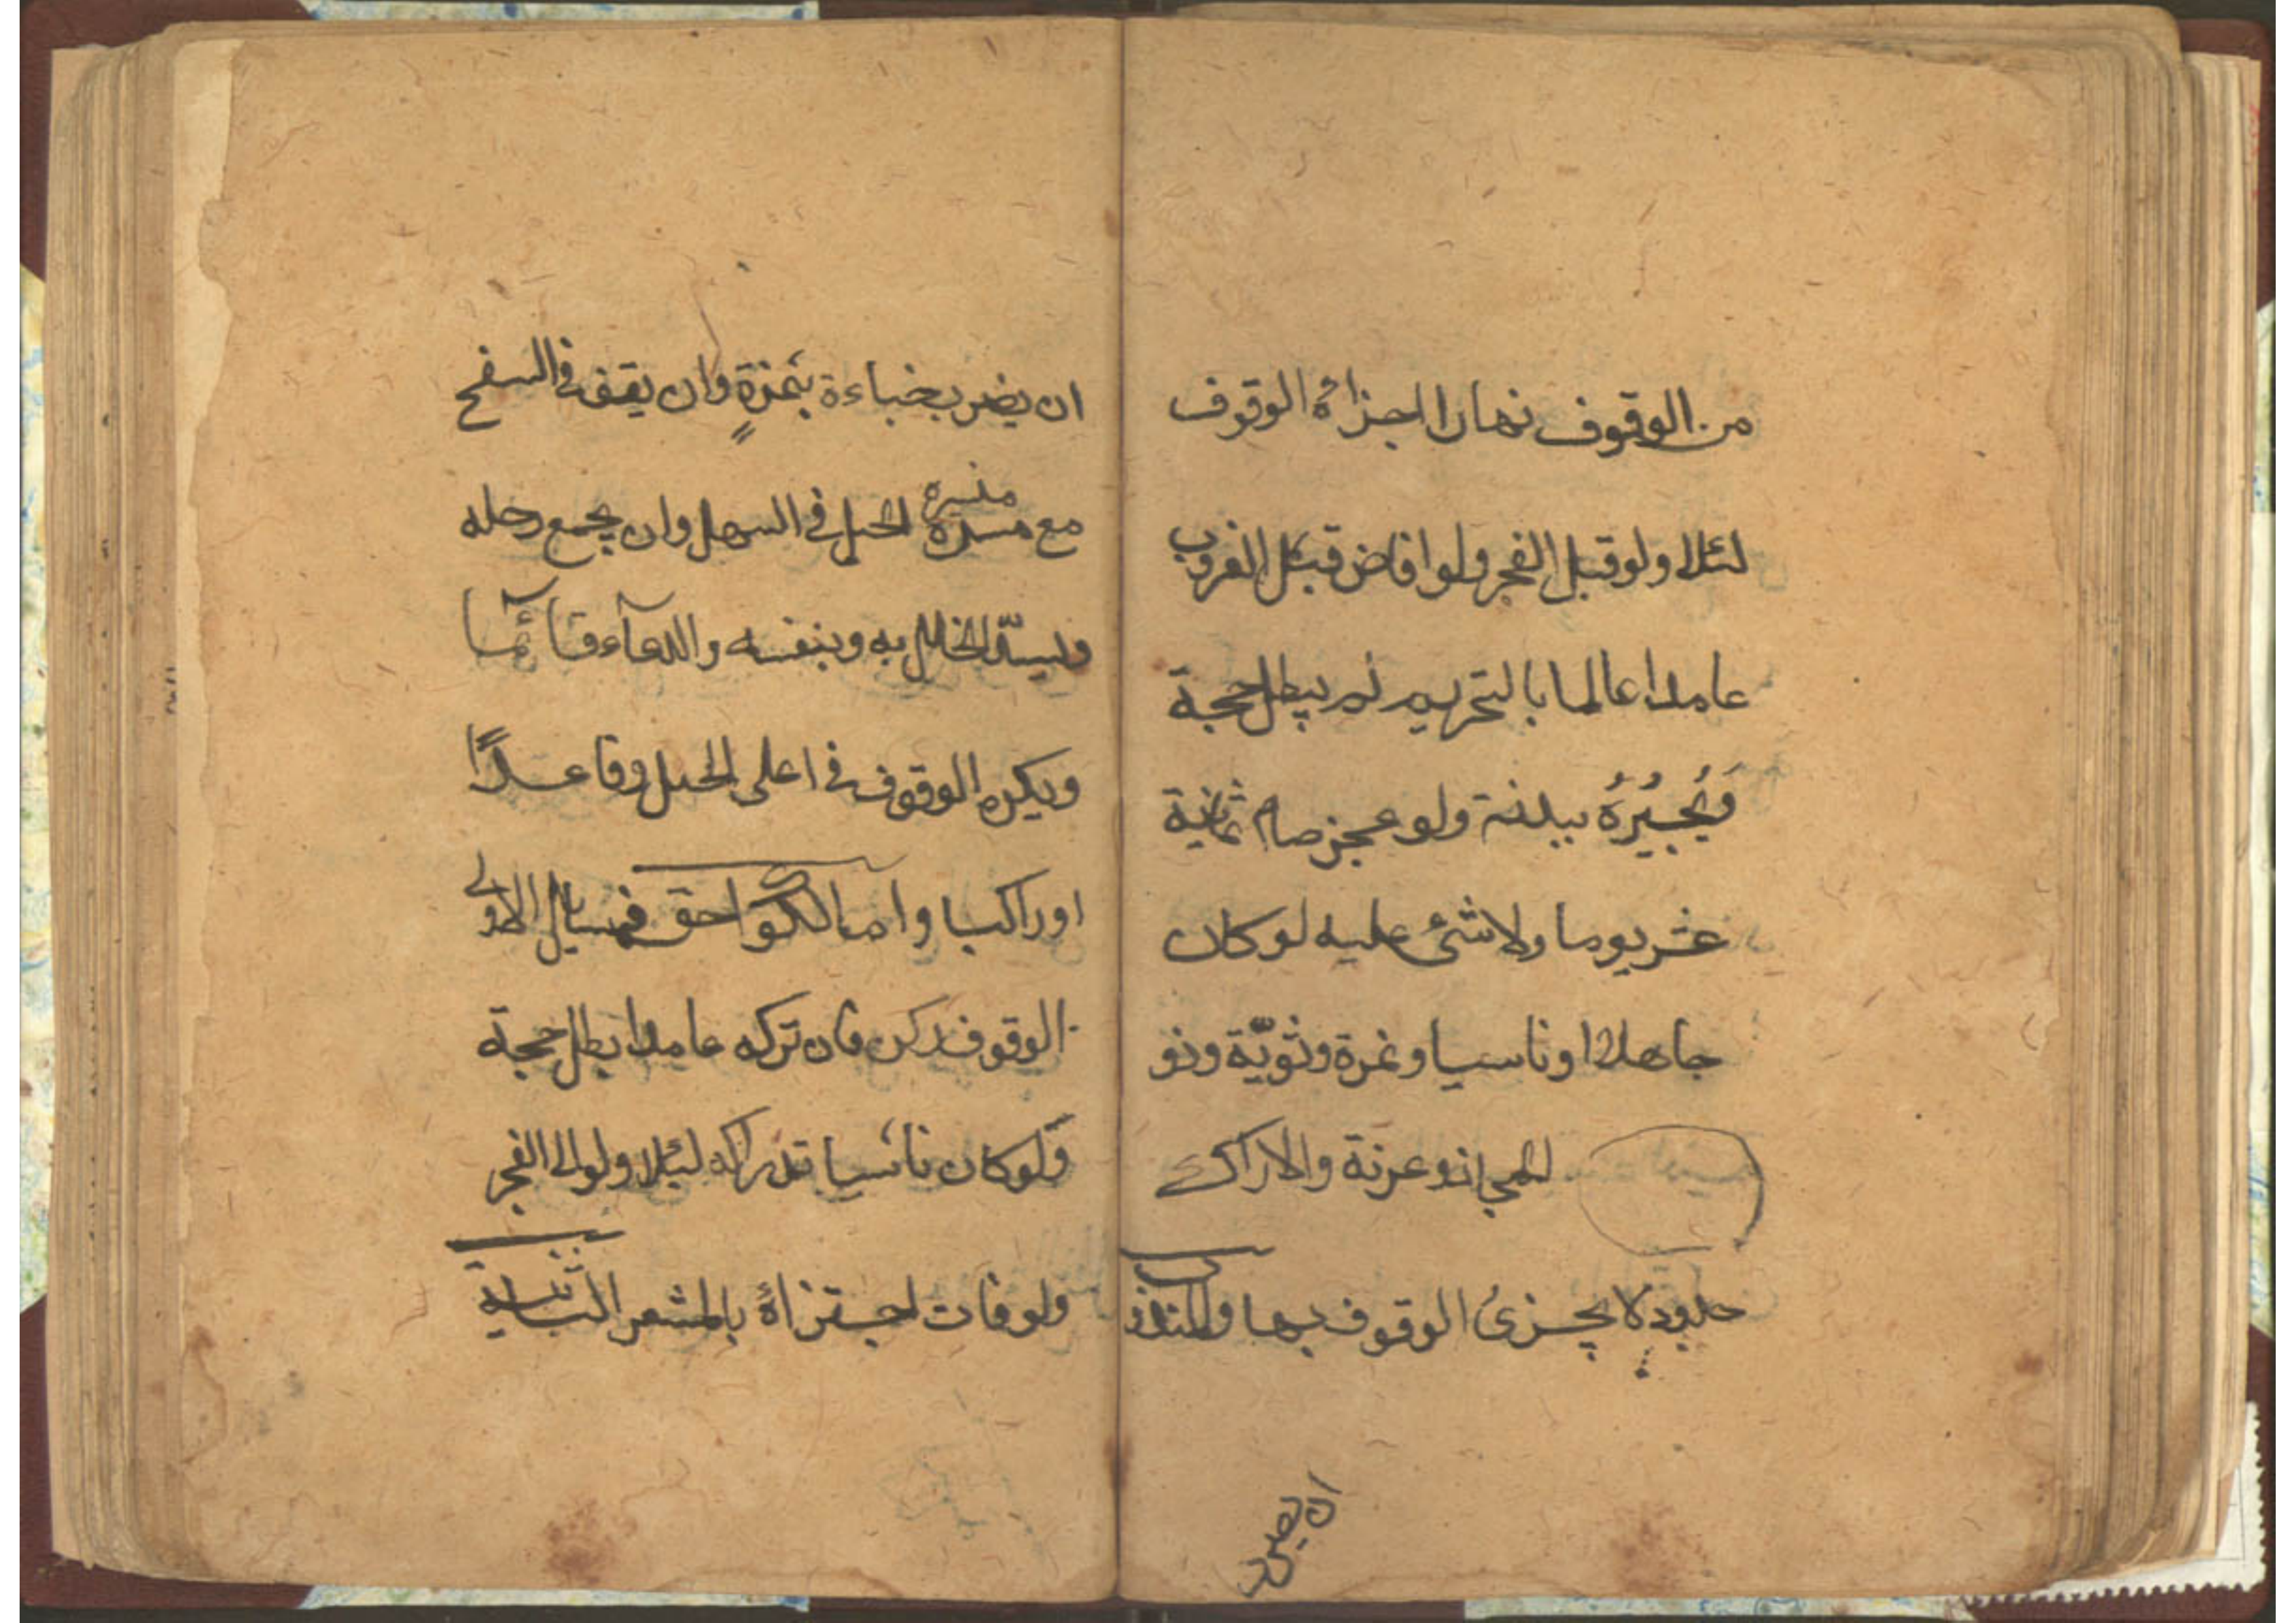 من الوقوف نهارا اجزائه الوقوف
لئلا ولو قبل الفجر ولو افاض قبل الغروب
عامدا عالما بالتحريم لم يبطل حجة
وَيُجبِيُرُهُ ببدنة ولو عجز صام ثمانية
عشر يوما ولا شئ عليه لو كان
جاهلا او ناسيا و نمرة وثويّة وذو
المجاز وعرنة والاراك
حدود لا يجزئ الوقوف بها والمندوب
ان يضرب
ان يضرب خباءة بنمرةٍ وان يقف في السفح
مع ميسرة الجبل في السهل وان يجمع رحله
ميسرة
ويسدّ الخلل به وبنفسه والدعآء قآئما
ويكره الوقوف في اعلى الجبل وقاعدًا
او راكبا واما اللواحق فمسايل الاولى
الوقوف ركن فان تركه عامدا بطل حجة
فلو كان ناسيا تداركه ليلا ولو الى الفجر
ولو فات اجتزاهُ بالمشعر الثانية